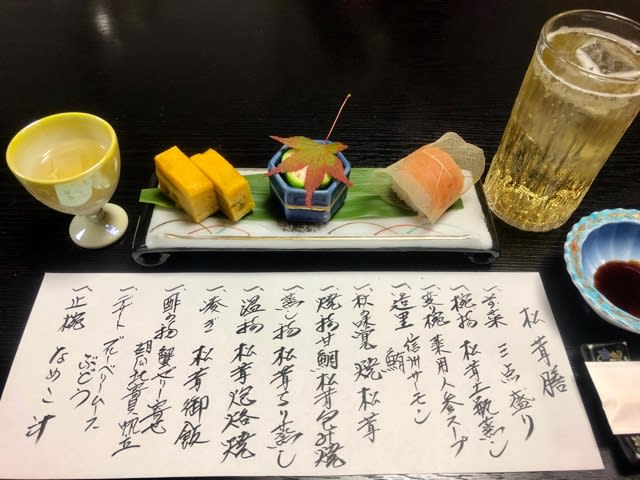 松茸膳
一、前菜 三点盛り
一、椀物 松茸土瓶蒸し
一、変り椀 薬用人参スープ
一、造里 信州サーモン
鯛
焼松茸
一、焼物 甘鯛松茸包み焼
一、蒸し物 松茸ちり蒸し
一、温物 松茸焙烙焼
一、凌ぎ 松茸御飯
一、酢の物 蟹ゼリー寄せ
帆立
一、デザート ブルーベリームース
ぶどう
一、止椀 なめこ汁